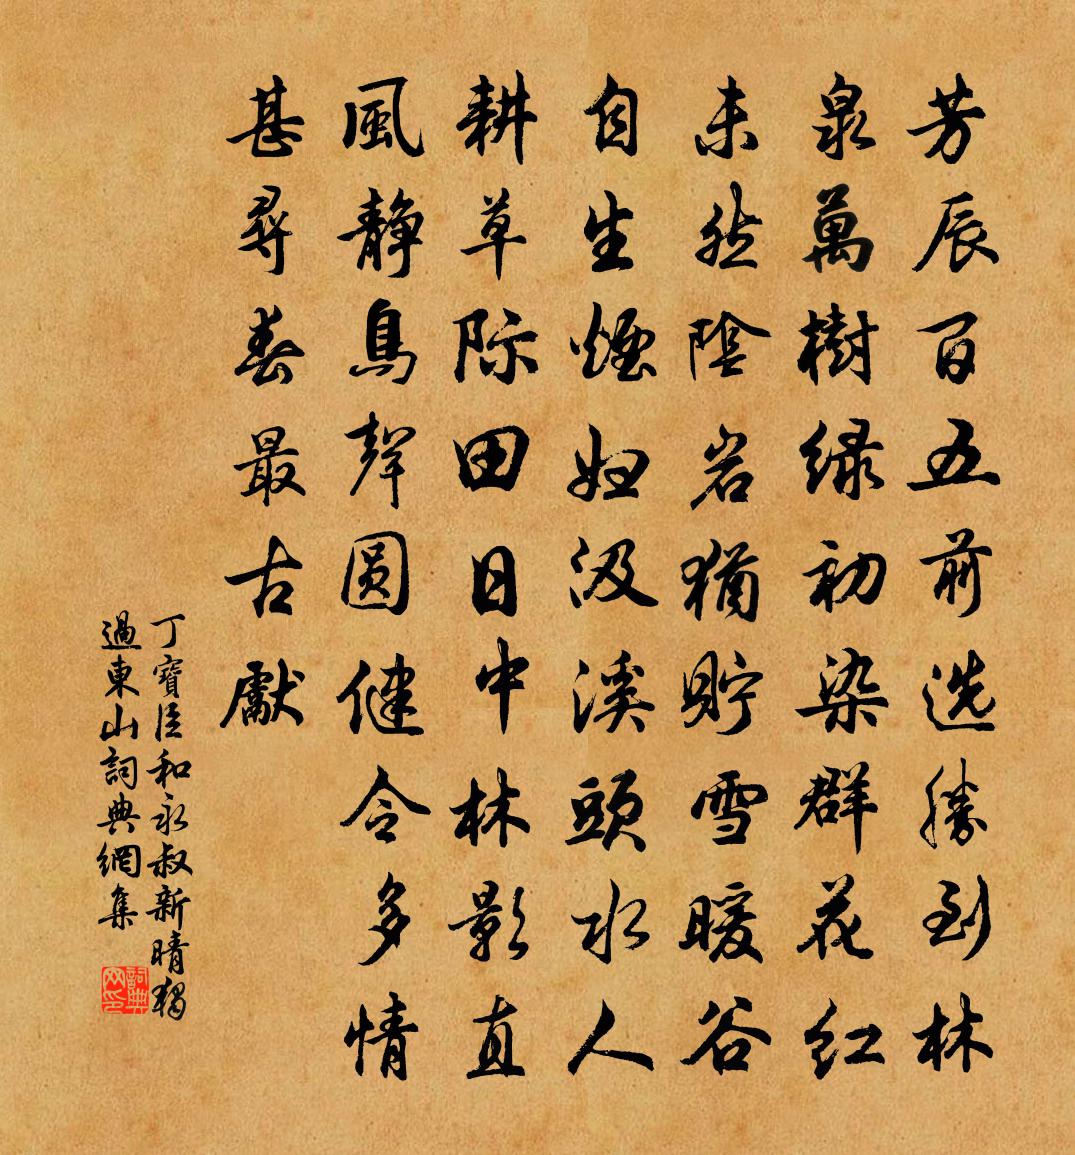 芳辰百五前选勝到林
泉萬樹緑初染群花红
未然陰岩猶貯雪暖谷
自生煙妇汲溪頭水人
耕草际田日中林影直
風静鳥聲圆健令多情
甚尋春最古獻
丁寶臣和永叔新晴獨
過東山詞典網集
詞典网印